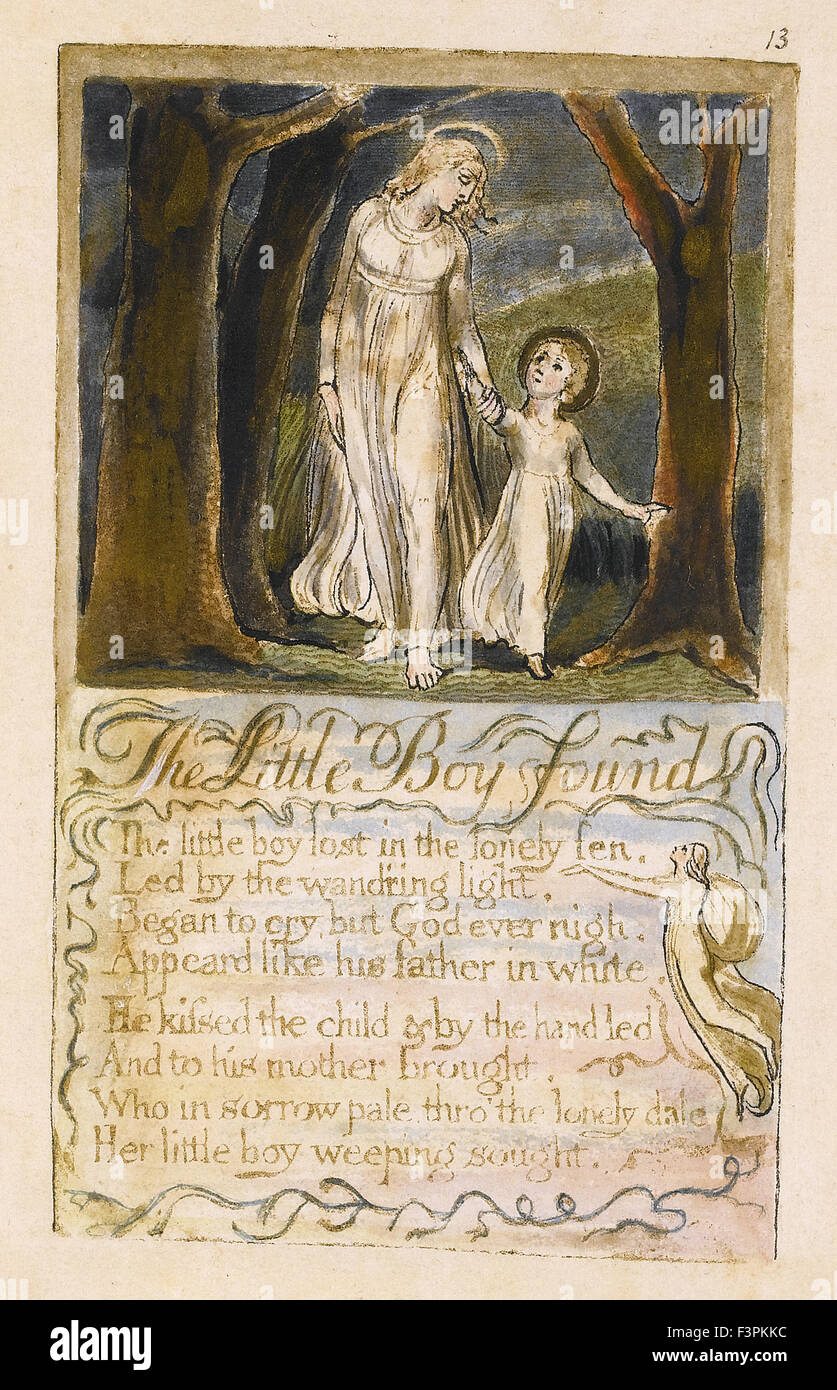 13
The Little Boy found
The little boy lost in the lonely fen,
Led by the wand'ring light,
Began to cry, but God ever nigh,
Appeard like his father in white.
He kissed the child & by the hand led
And to his mother brought,
Who in sorrow pale, thro' the lonely dale
Her little boy weeping sought.
a
alamy
alamy
Image ID: F3PKKC
www.alamy.com